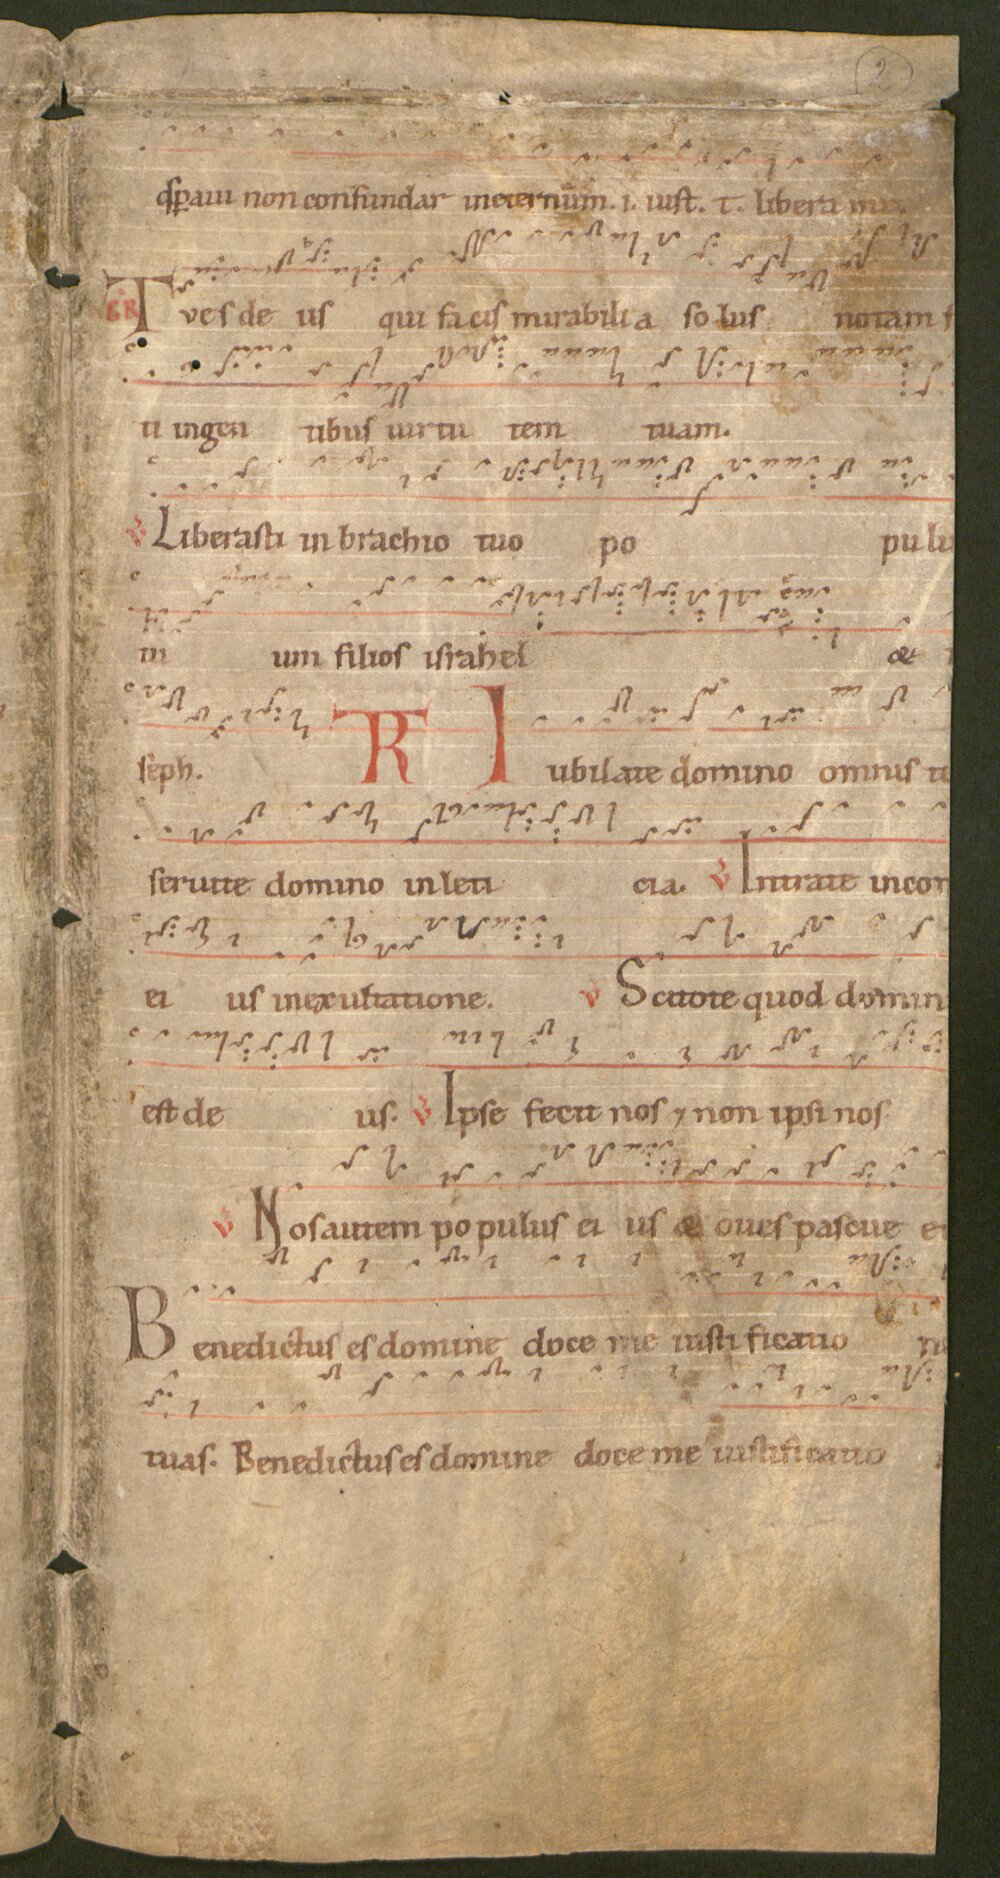 2
qđ sꝑaui non confundar ineternūm. i. iust. t. libera me.
GR Tu es de us qui fa cis mirabili a so lus notam f
ti ingen tibus uirtu tem tuam.
V Liberasti in brachio tuo po pu lu
tu um filios israhel &
seph. TR Iubilate domino omnis t
seruite domino in leti cia. V Intrate incon
ei us inexultatione. V Scitote quod domin
est de us. V Ipse fecit nos ⁊ non ipsi nos
V Nos autem po pulus ei us & oues pascue ei
Benedictus es domine doce me iusti ficatio
tuas. Benedictus es domine doce me iustificatio